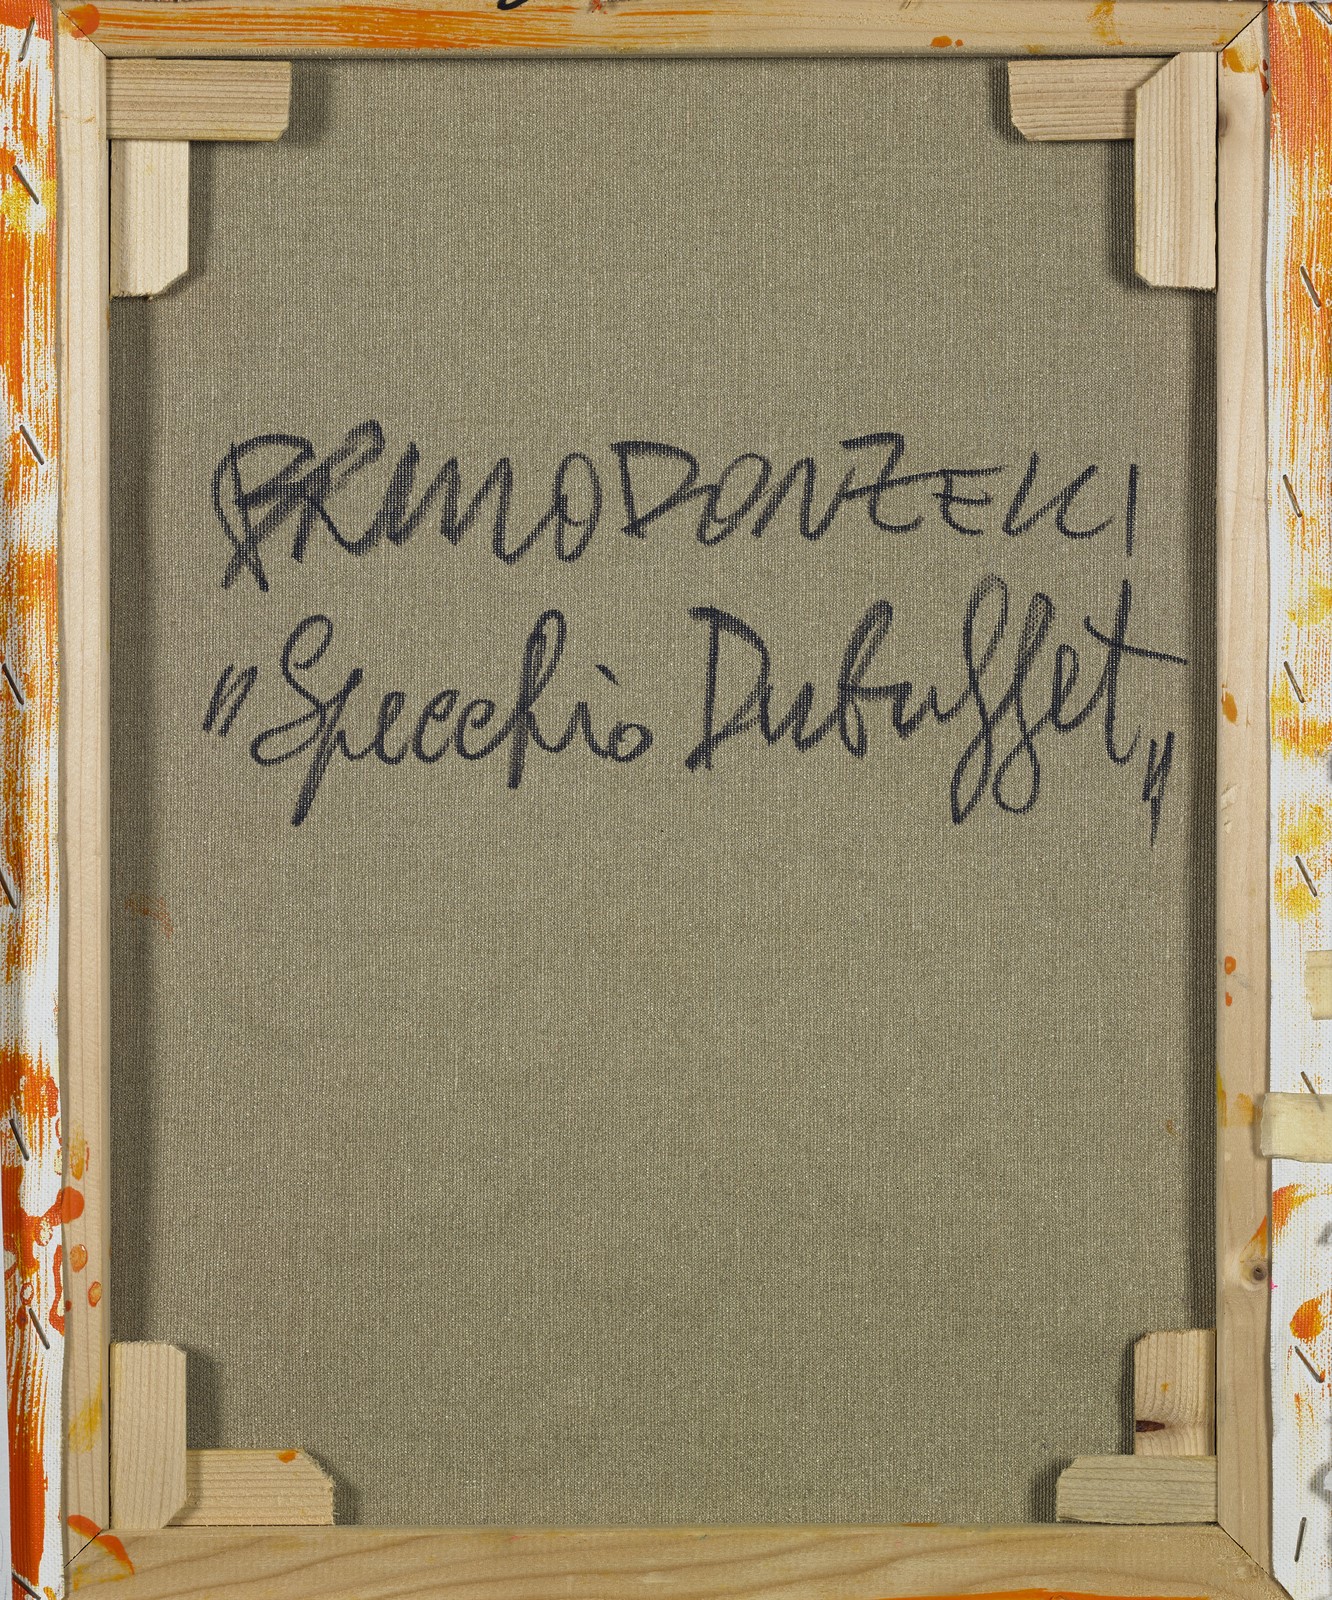 BRUNO DONZELLI
"Specchio Dubuffet"